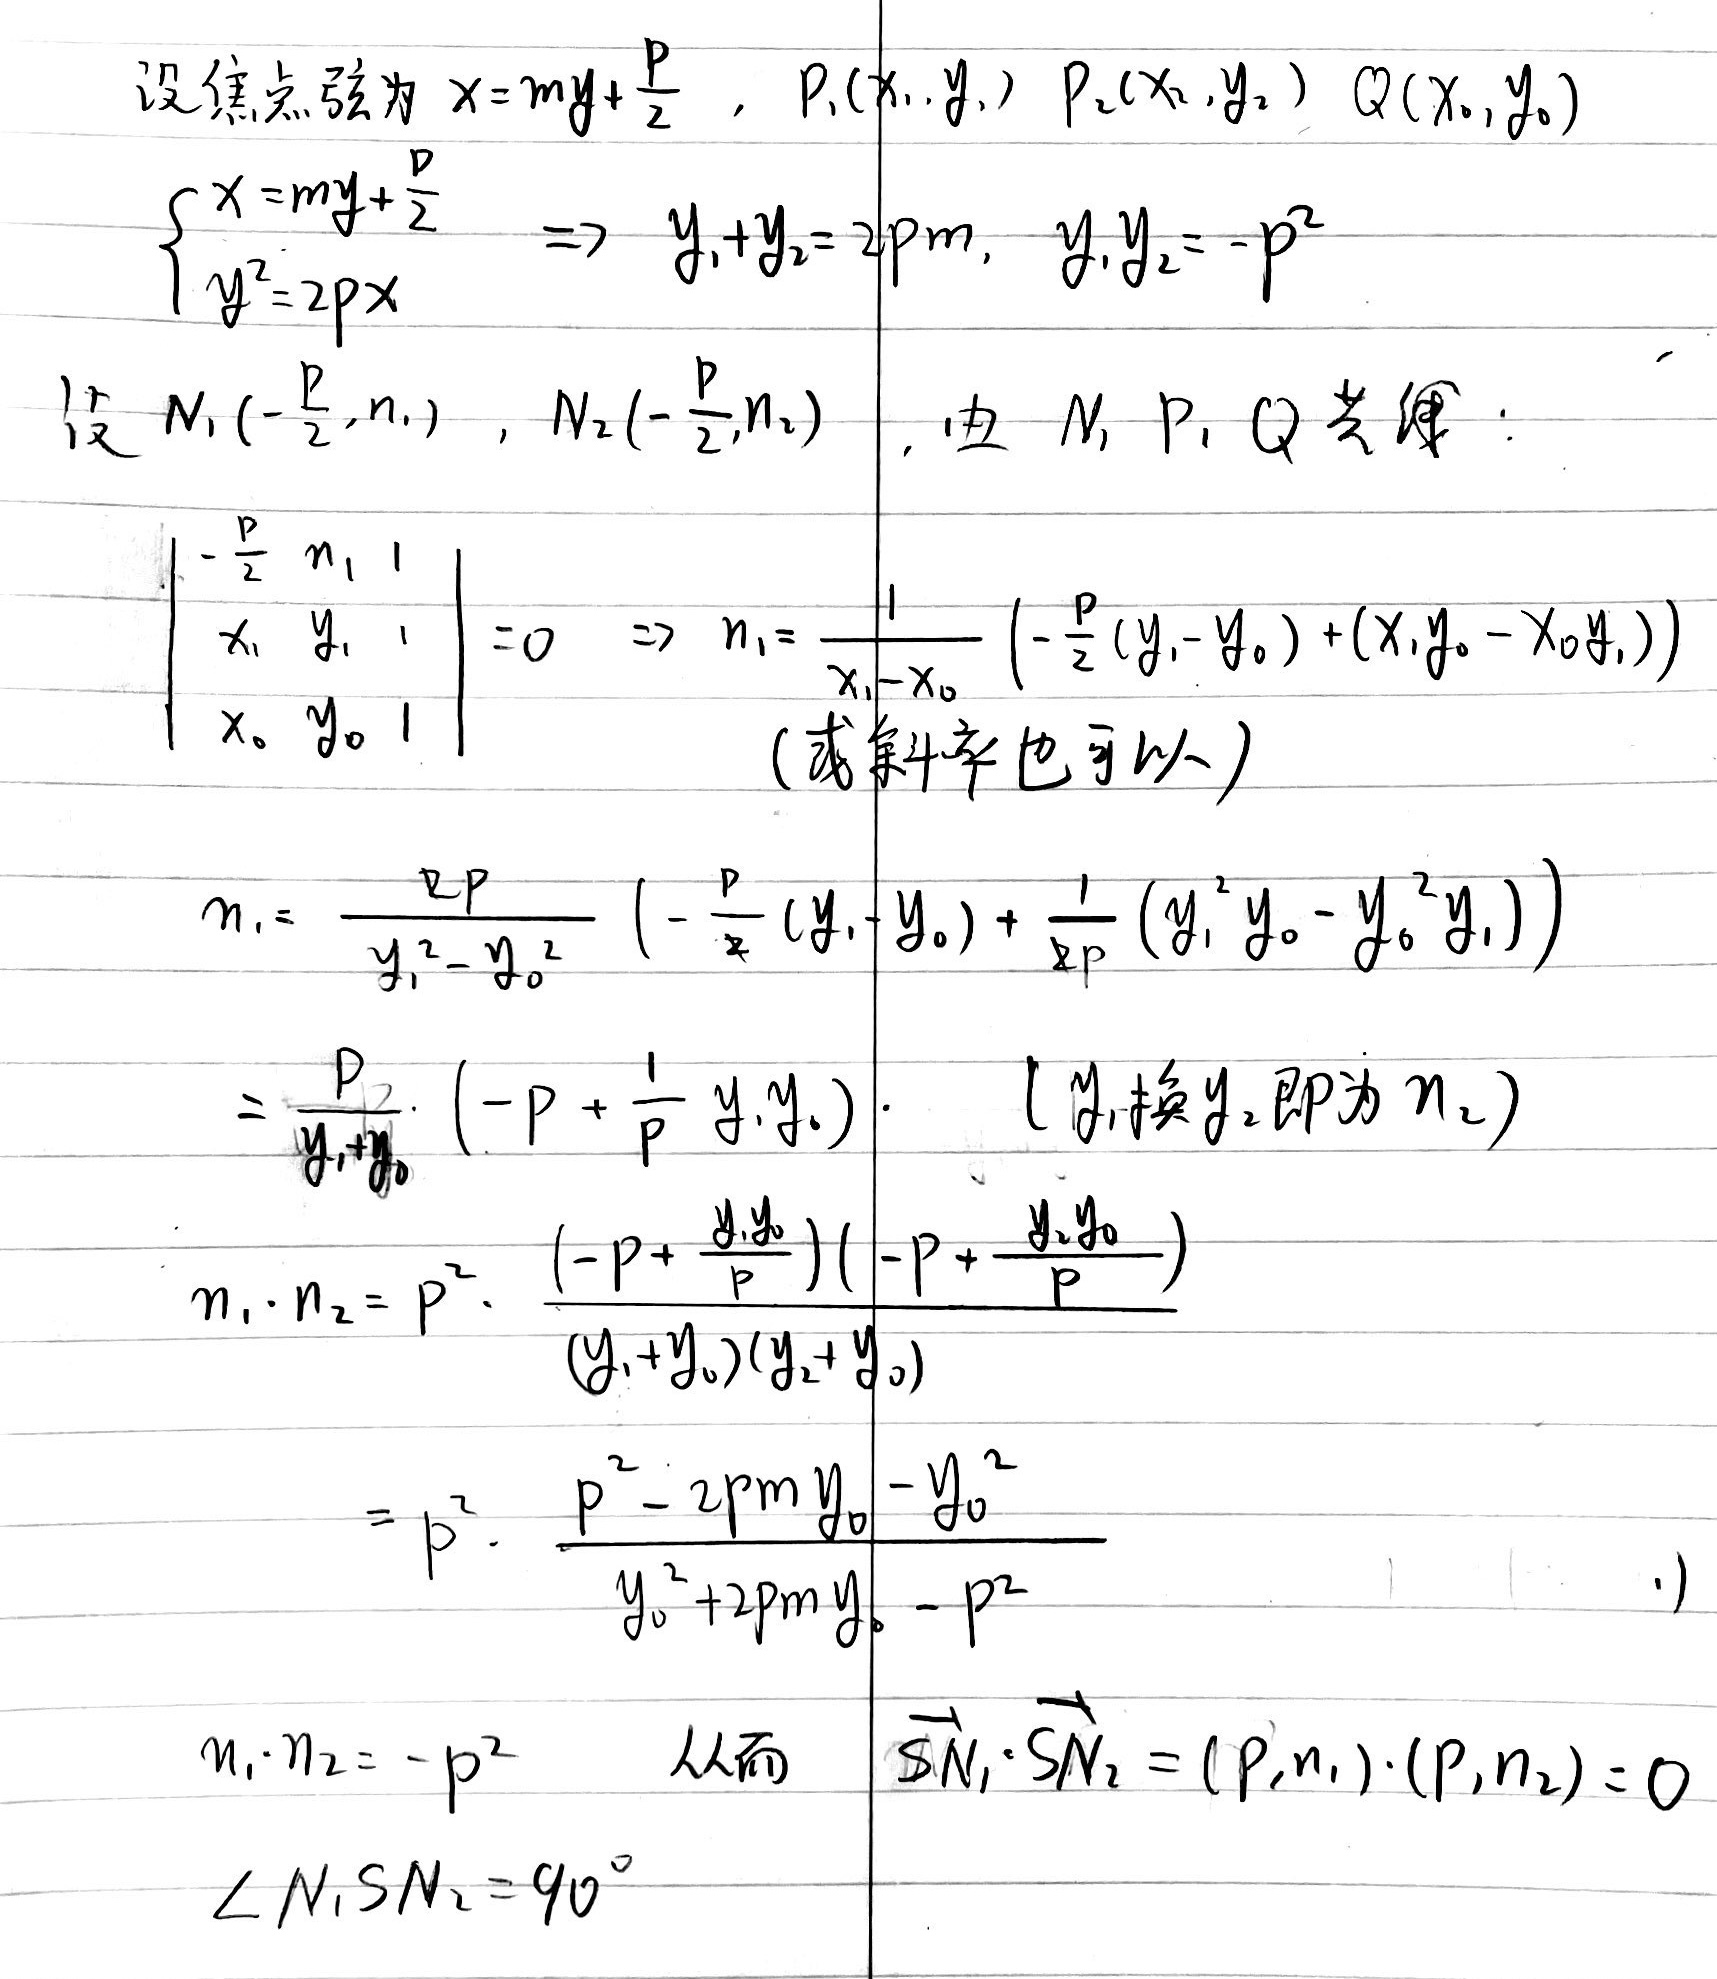 设焦点弦为 x=my+\frac{p}{2} , P₁(x₁,y₁) P₂(x₂,y₂) Q(x₀,y₀)
\begin{cases} x=my+\frac{p}{2} \\ y²=2px \end{cases} ⇒ y₁+y₂=2pm, y₁y₂=-p²
设 N₁(-\frac{p}{2},n₁) , N₂(-\frac{p}{2},n₂) , 由 N₁ P₁ Q 共线 :
\begin{vmatrix} -\frac{p}{2} & n₁ & 1 \\ x₁ & y₁ & 1 \\ x₀ & y₀ & 1 \end{vmatrix} =0 ⇒ n₁=\frac{1}{x₁-x₀}(-\frac{p}{2}(y₁-y₀)+(x₁y₀-x₀y₁))
(或斜率也可以)
n₁=\frac{2p}{y₁²-y₀²}(-\frac{p}{2}(y₁-y₀)+\frac{1}{2p}(y₁²y₀-y₀²y₁))
=\frac{p}{y₁+y₀}·(-p+\frac{1}{p}y₁y₀). (y₁换y₂即为n₂)
n₁·n₂=p²·\frac{(-p+\frac{y₁y₀}{p})(-p+\frac{y₂y₀}{p})}{(y₁+y₀)(y₂+y₀)}
=p²·\frac{p²-2pmy₀-y₀²}{y₀²+2pmy₀-p²}
n₁·n₂=-p² 从而 \overrightarrow{SN₁}·\overrightarrow{SN₂}=(p,n₁)·(p,n₂)=0
∠N₁SN₂=90°